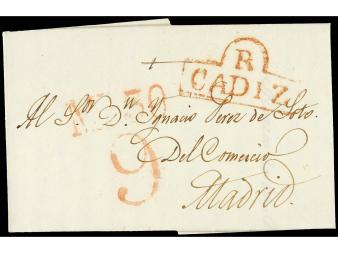 R
CADIZ
Nº 30
Al S.or D.n Ygnacio Perez de Soto.
Del Comercio
9
Madrid.